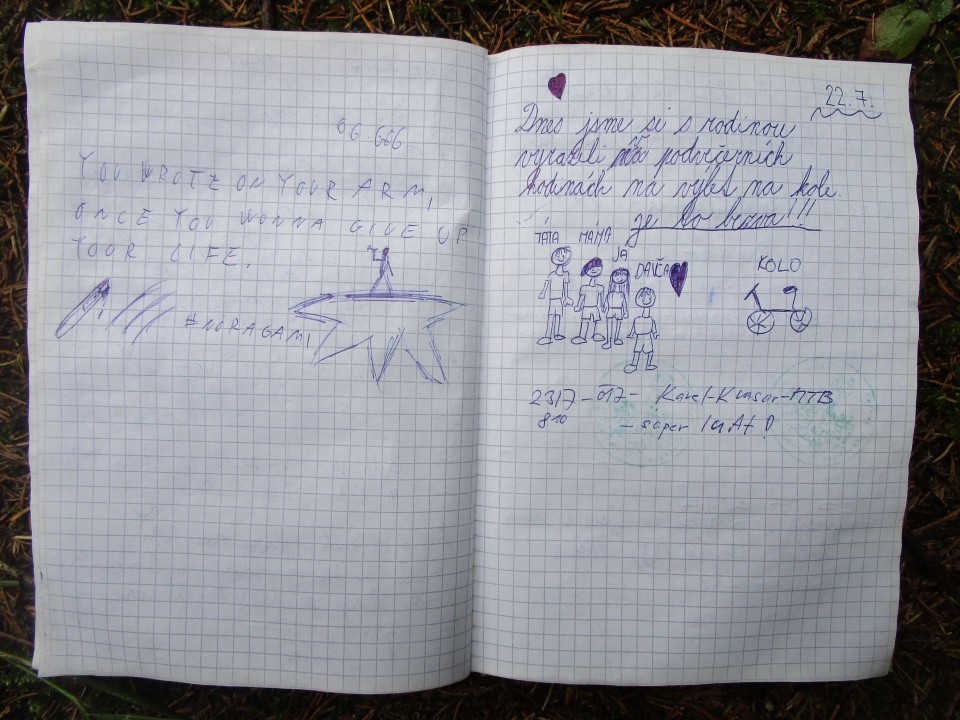 66.666
YOU WROTE ON YOUR ARM,
ONCE YOU WONNA GIVE UP
YOUR LIFE.
#NORAGAMI
22.7.
Dnes jsme si s rodinou
vyrazili podvečerních
hodinách na výlet na kole.
je to brzva!!!
TÁTA MÁMA JÁ DAVČA
KOLO
23/7 - - Karel - - MTB
810 - super